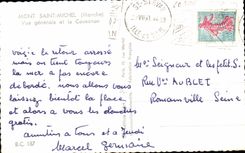 MONT SAINT-MICHEL (Manche)
Vue générale et le Couesnon
voici le retour arrosé
mais on tient toujours
la mer a pas encore
débordé. nous allons vous
laisser bientôt la place
et alors à vous les douches
gratis.
à tous et à Jeudi
Marcel Germaine
Mr Seigneur et les petits S.
Rue Vve AUBLET
Romainville Seine
E.C. 157